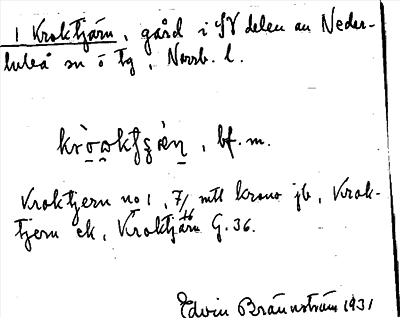 1 Kroktjärn, gård i SV delen av Neder-
luleå sn o tg, Norrb. l.
bf. m.
Kroktjern no 1, 7/16 mtl krono jb, Krok-
tjern ek, Kroktjärn G. 36.
Edvin Brännström 1931